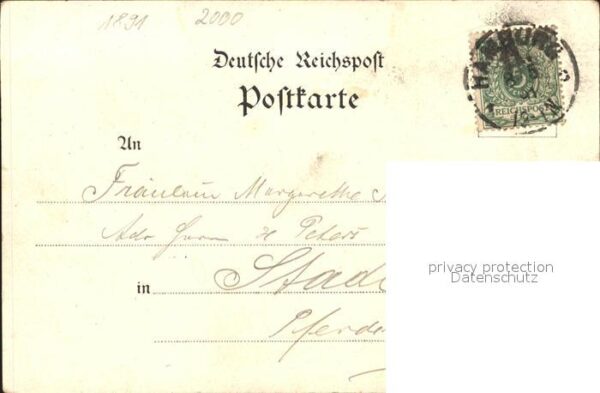 1891 2000
Deutsche Reichspost
Postkarte
HAMBURG
REICHSPOST
An
Fräulein Margarethe
Adr Herrn H Peters
in Stade
Pferde
privacy protection
Datenschutz